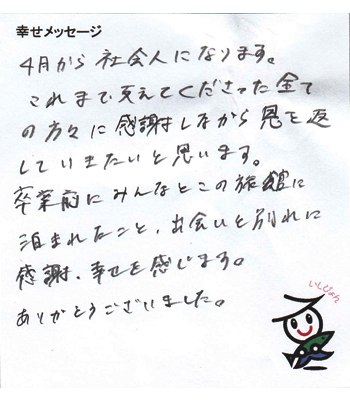 幸せメッセージ
4月から社会人になります。
これまで支えてくださった全て
の方々に感謝しながら恩を返
していきたいと思います。
卒業前にみんなとこの旅館に
泊まれたこと、出会いと別れに
感謝、幸せを感じます。
ありがとうございました。
いしぴょん